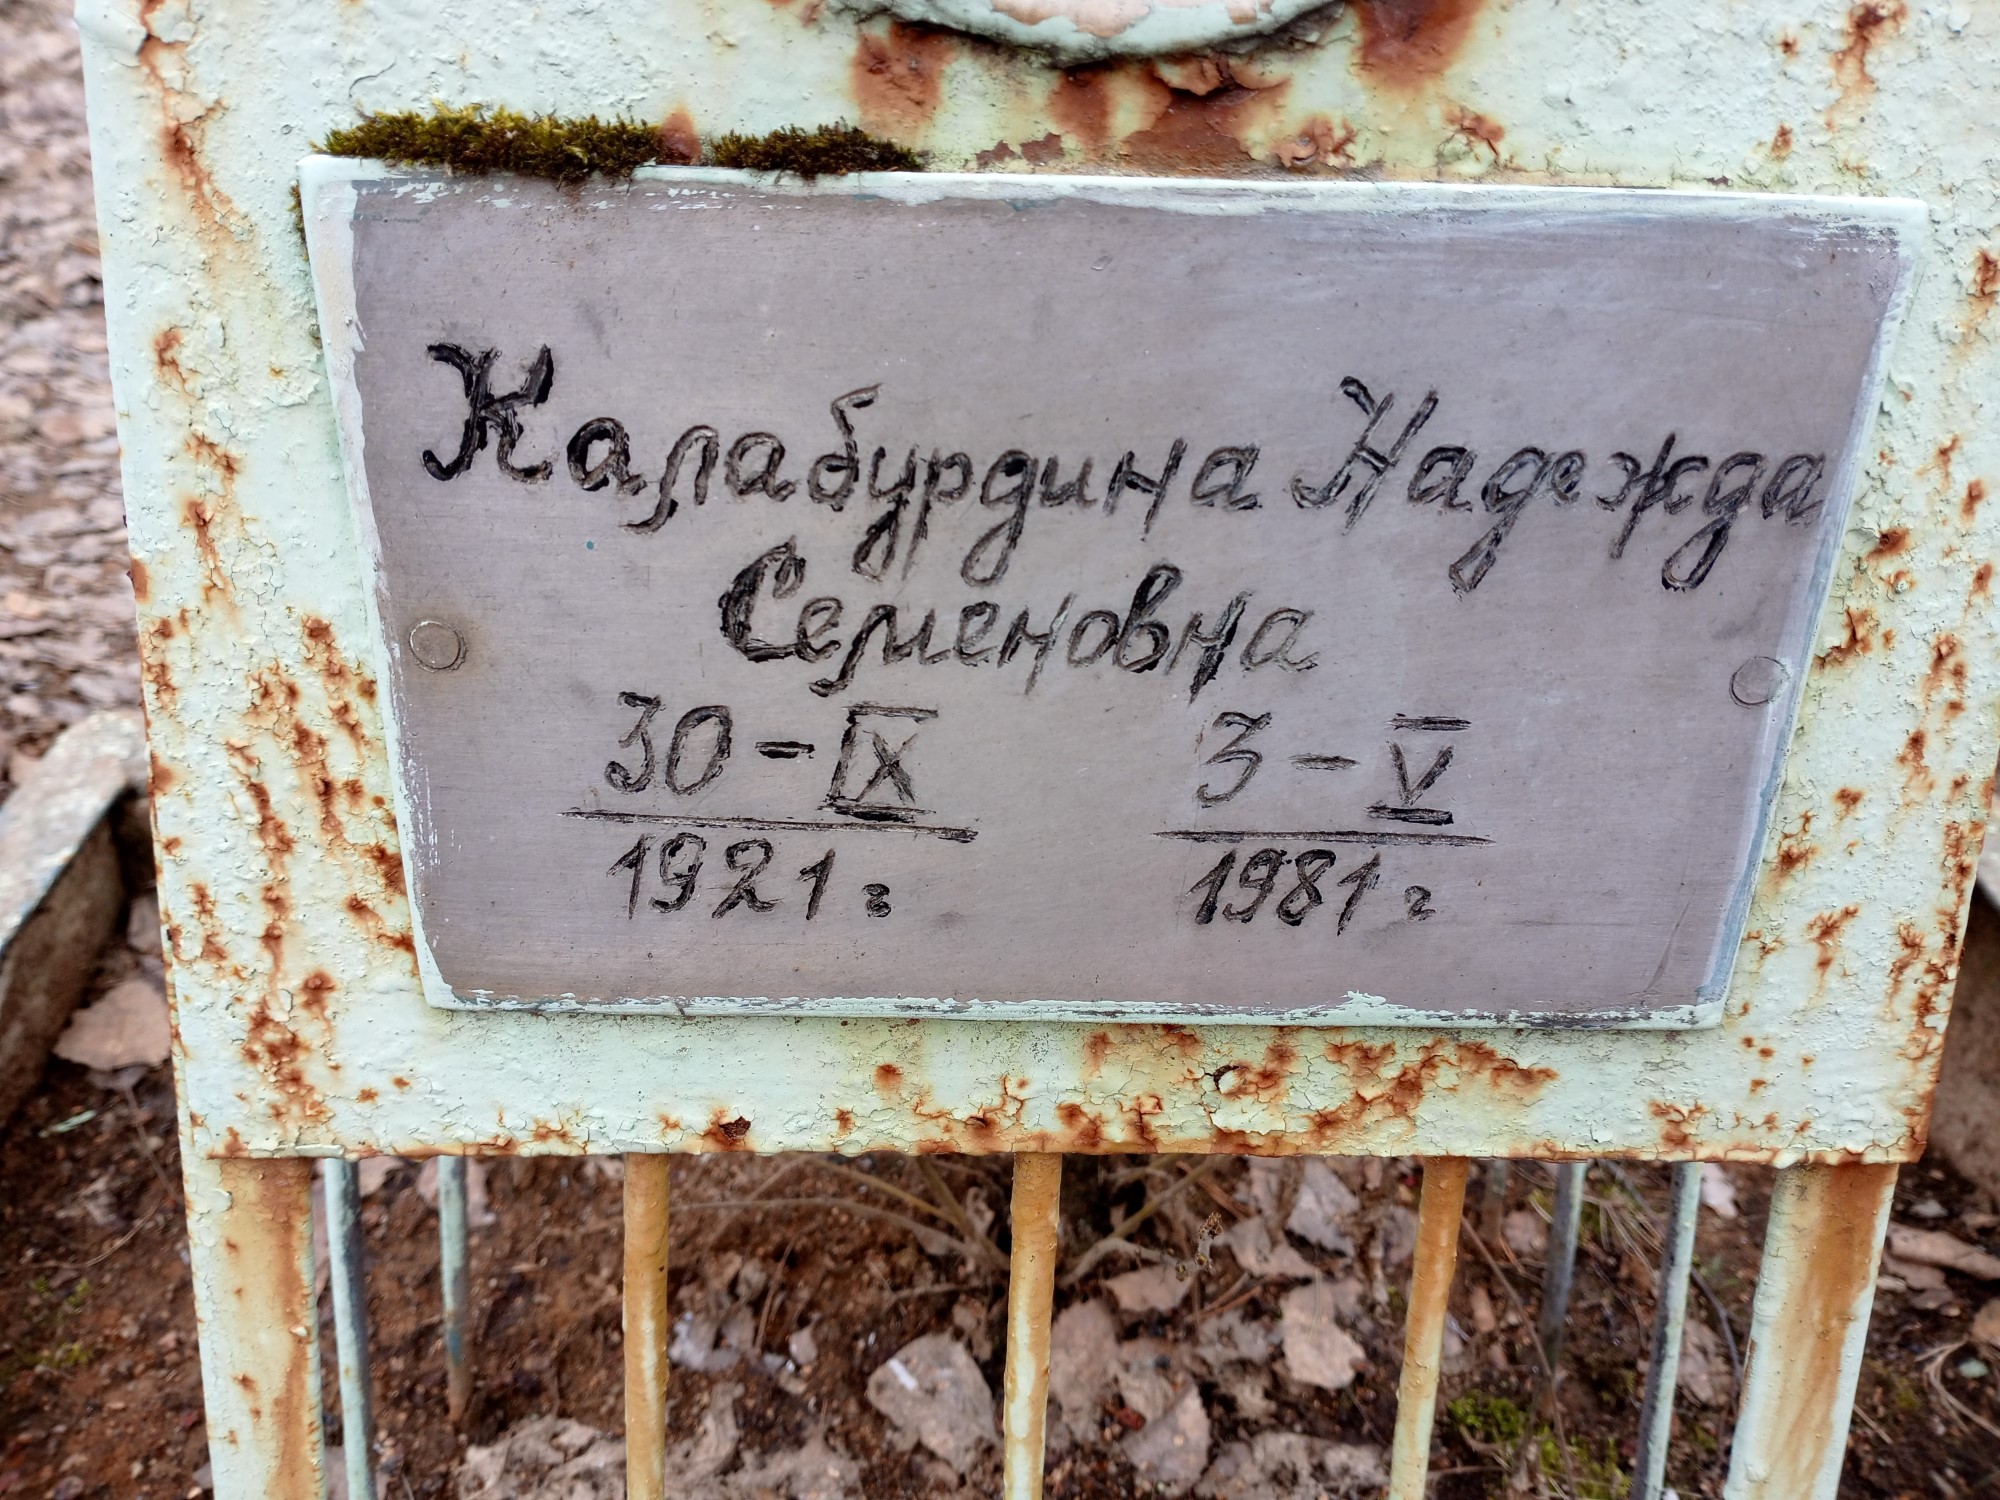 Калабурдина Надежда
Семеновна
30-IX 3-V
1921г 1981г